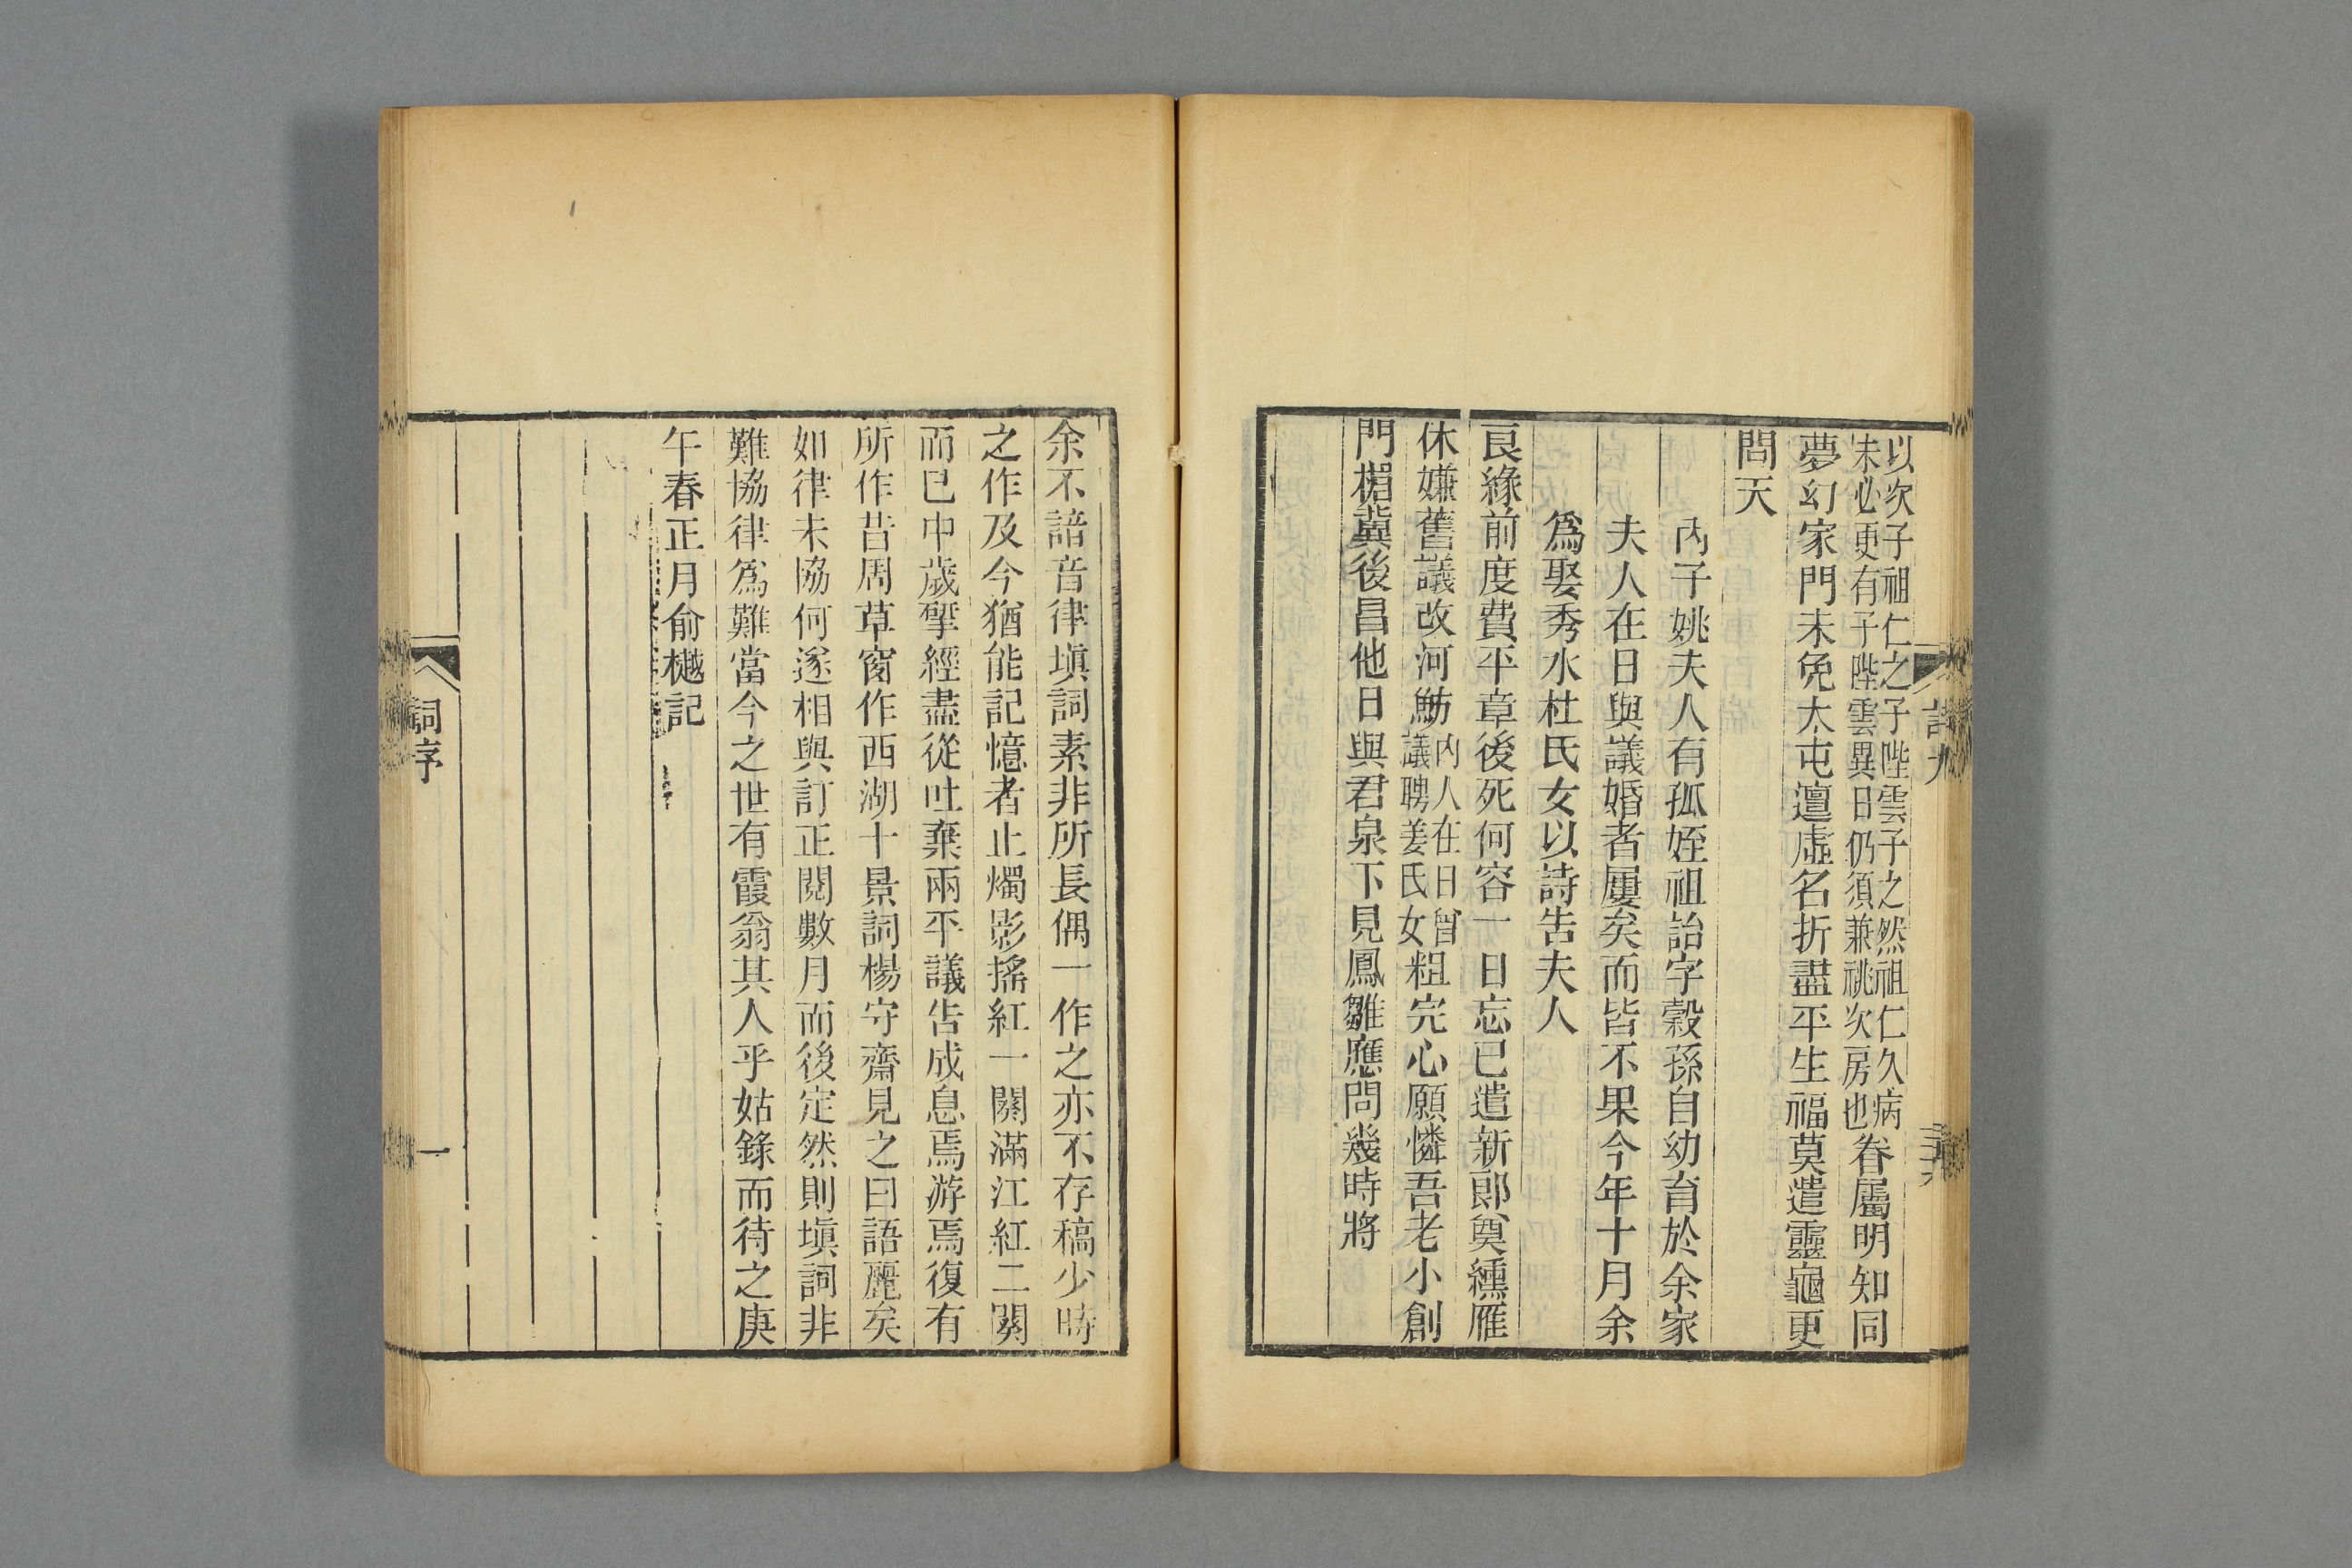 以次子祖仁之子陛雲子之然祖仁久病
未必更有子陛雲異日仍須兼祧次房也眷屬明知同
夢幻家門未免太屯邅虛名折盡平生福莫遣靈龜更
問天
內子姚夫人有孤姪祖詒字穀孫自幼育於余家
夫人在日與議婚者屢矣而皆不果今年十月余
爲娶秀水杜氏女以詩告夫人
良緣前度費平章後死何容一日忘已遣新郎奠纁雁
休嫌舊議改河魴內人在日曾
議聘姜氏女粗完心願憐吾老小創
門楣冀後昌他日與君泉下見鳳雛應問幾時將
詩九
余不諳音律塡詞素非所長偶一作之亦不存稿少時
之作及今猶能記憶者止燭影搖紅一闋滿江紅二闋
而已中歲揅經盡從吐棄兩平議告成息焉游焉復有
所作昔周草窗作西湖十景詞楊守齋見之曰語麗矣
如律未協何遂相與訂正閱數月而後定然則塡詞非
難協律爲難當今之世有霞翁其人乎姑錄而待之庚
午春正月俞樾記
詞序
一